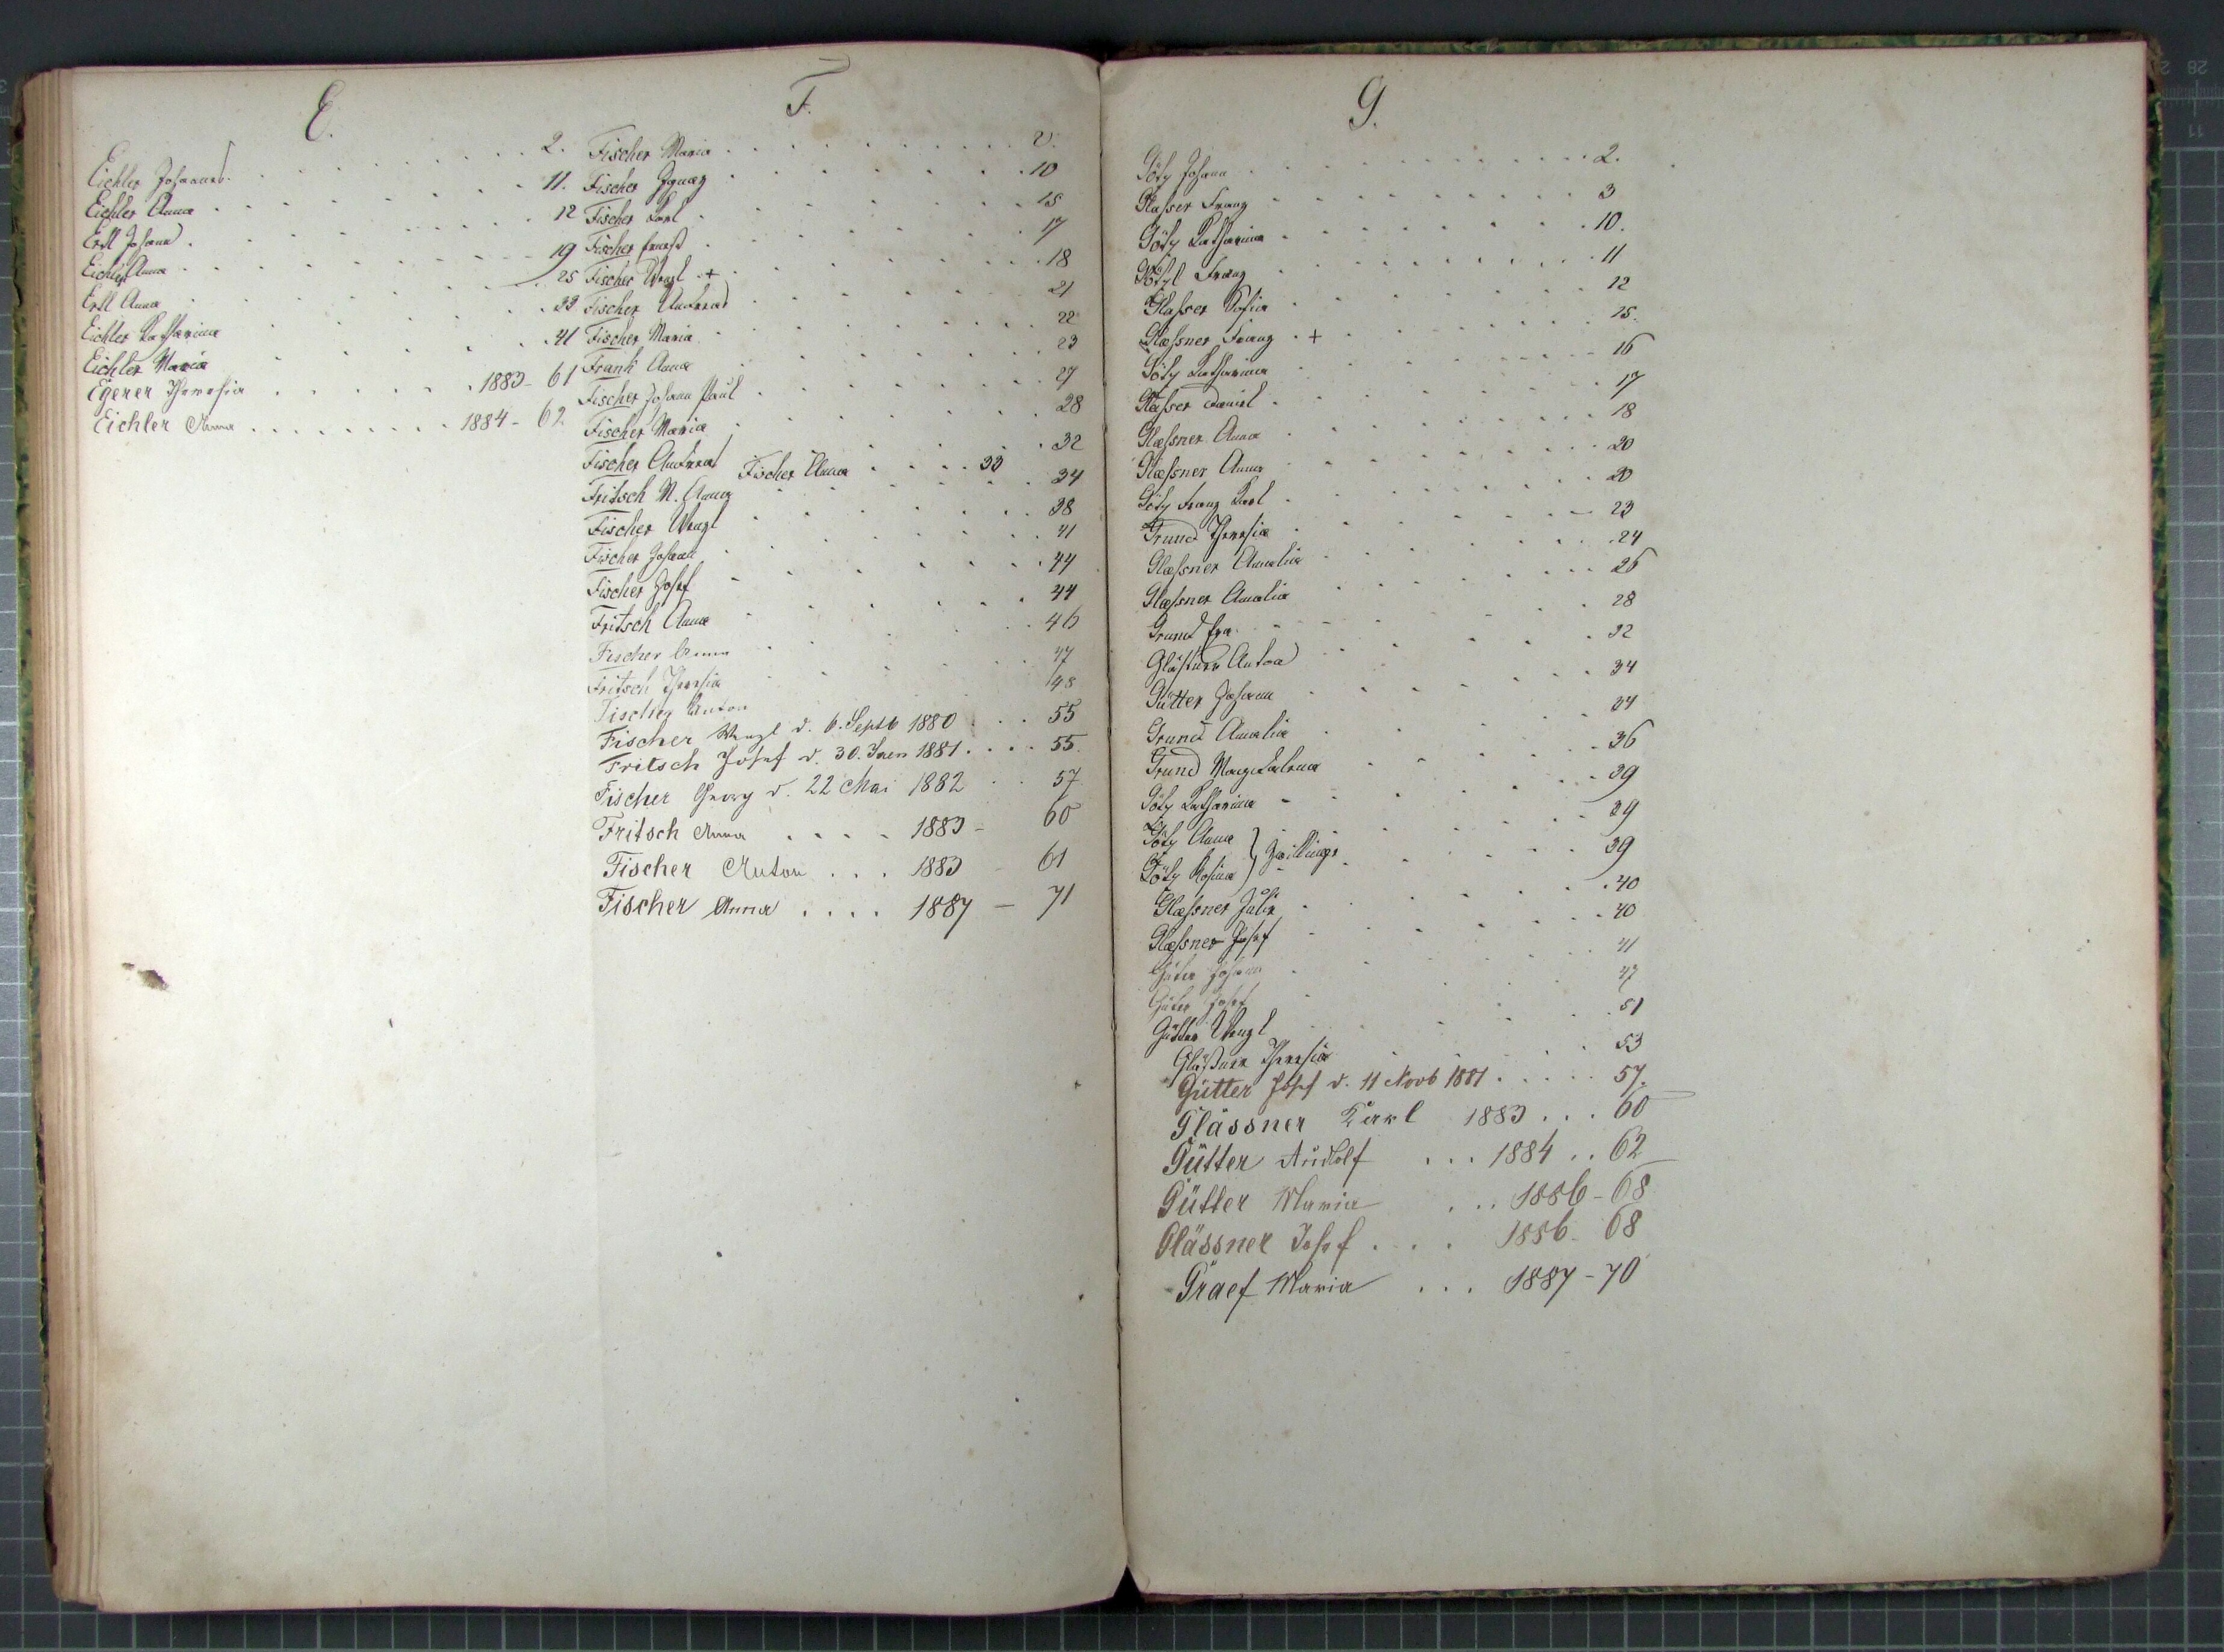 E.
Eichler Johann . . . . . . . 2.
Eichler Anna . . . . . . . 11.
Ertl Johann . . . . . . . 12
Eichler Anna . . . . . . . 19
Ertl Anna . . . . . . . 25
Eichler Katharina . . . . . . . 33
Eichler Maria . . . . . . . 41
Egerer Theresia . . . . . . . 1883 - 61
Eichler Anna . . . . . . . . . 1884 - 62
F.
Fischer Maria . . . . . . . 2.
Fischer Ignaz . . . . . . . 10
Fischer Karl . . . . . . . 15
Fischer Ernest . . . . . . . 17
Fischer Wenzl + . . . . . . . 18
Fischer Andreas . . . . . . . 21
Fischer Maria . . . . . . . 22
Frank Anna . . . . . . . 23
Fischer Johann Paul . . . . . . . 27
Fischer Maria . . . . . . . 28
Fischer Andreas . . . . . . . 32
Fischer Anna . . . . 33
Fritsch M. Anna . . . . . . . 34
Fischer Wenzl . . . . . . . 38
Fischer Johann . . . . . . . 41
Fischer Josef . . . . . . . 44
Fritsch Anna . . . . . . . 44
Fischer Anna . . . . . . . 46
Fritsch Theresia . . . . . . . 47
Fischer Anton . . . . . . . 48
Fischer Wenzl d. 6. Septb 1880 . . . 55
Fritsch Josef d. 30. Jaen 1881 . . . . 55.
Fischer Georg d. 22 Mai 1882 . . 57
Fritsch Anna . . . . 1883 - 60
Fischer Anton . . . 1883 - 61
Fischer Anna . . . . 1887 - 71
G.
Götz Johann . . . . . . . 2.
Glasser Franz . . . . . . . 3
Götz Katharina . . . . . . . 10.
Götzl Franz . . . . . . . 11
Glasser Sofia . . . . . . . 12
Glæssner Franz . + . . . . . . 15.
Götz Katharina . . . . . . . 16
Glasser Daniel . . . . . . . 17
Glæssner Anna . . . . . . . 18
Glæssner Anna . . . . . . . 20
Götz Franz Karl . . . . . . . 20
Grund Theresia . . . . . . . 23
Glæssner Amalia . . . . . . . 24
Glæssner Amalia . . . . . . . 25
Grund Eva . . . . . . . 28
Glässner Anton . . . . . . . 32
Gütter Johann . . . . . . . 34
Grund Amalia . . . . . . . 34
Grund Magdalena . . . . . . . 36
Götz Katharina . . . . . . . 39
Götz Anna } Zwillinge . . . . . 39
Götz Rosina } . . . . . 39
Glæssner Julie . . . . . . . 40
Glæssner Josef . . . . . . . 40
Güter Johann . . . . . . . 41
Güter Josef . . . . . . . 47
Gütter Wenzl . . . . . . . 51
Glässner Theresia . . . . . . . 53
Gütter Josef d. 11 Novb 1881 . . . . . 57.
Glässner Karl 1883 . . . 60
Gütter Rudolf . . . 1884 . . 62
Gütter Maria . . . 1886 - 68
Glässner Josef . . . . 1886 - 68
Graef Maria . . . 1887 - 70